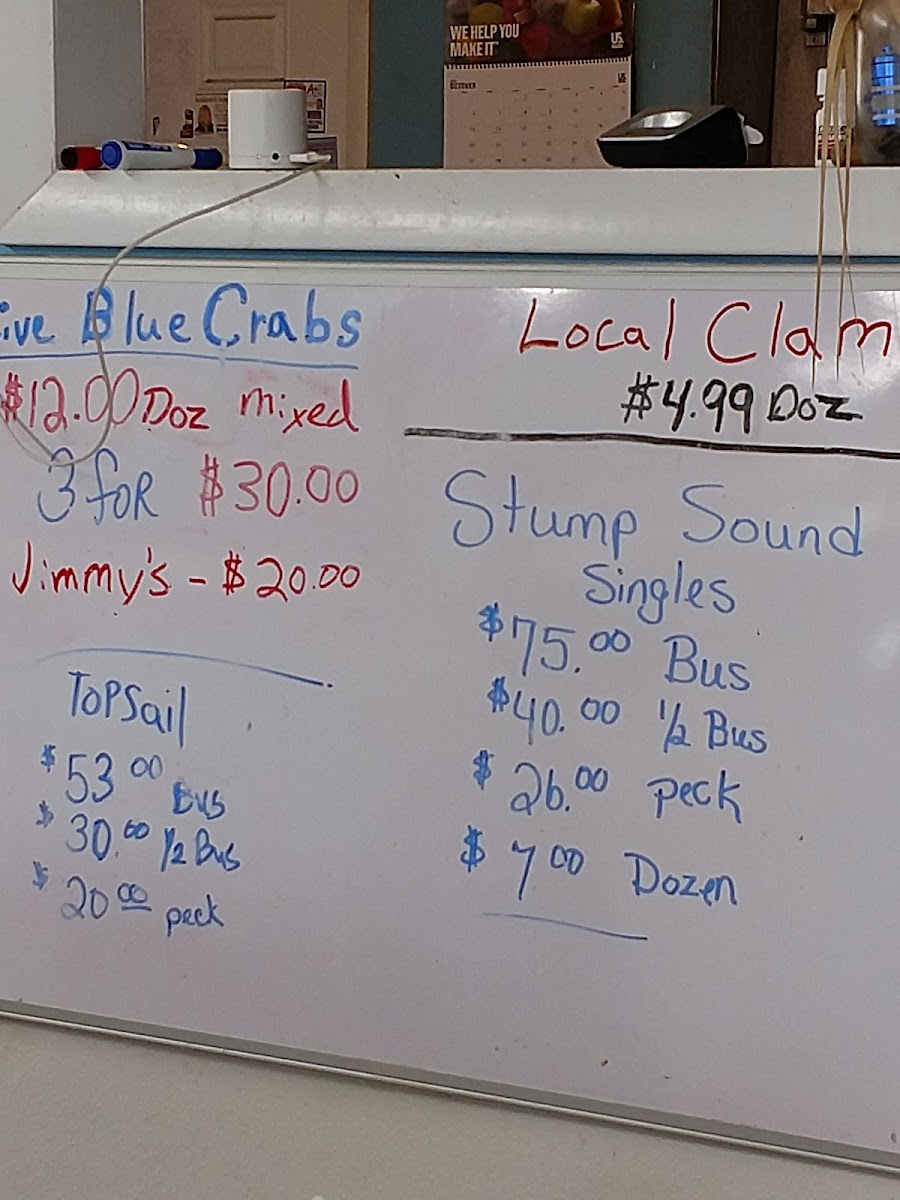 WE HELP YOU
MAKE IT
US.
OCTOBER
A+
ive Blue Crabs
$12.00 Doz mixed
3 for $30.00
Jimmy's - $20.00
TOPSail
$53 00 Bus
$30.00 1/2 Bus
$20 00 peck
Local Clam
$4.99 Doz
Stump Sound
Singles
$75.00 Bus
$40.00 1/2 Bus
$26.00 peck
$7 00 Dozen